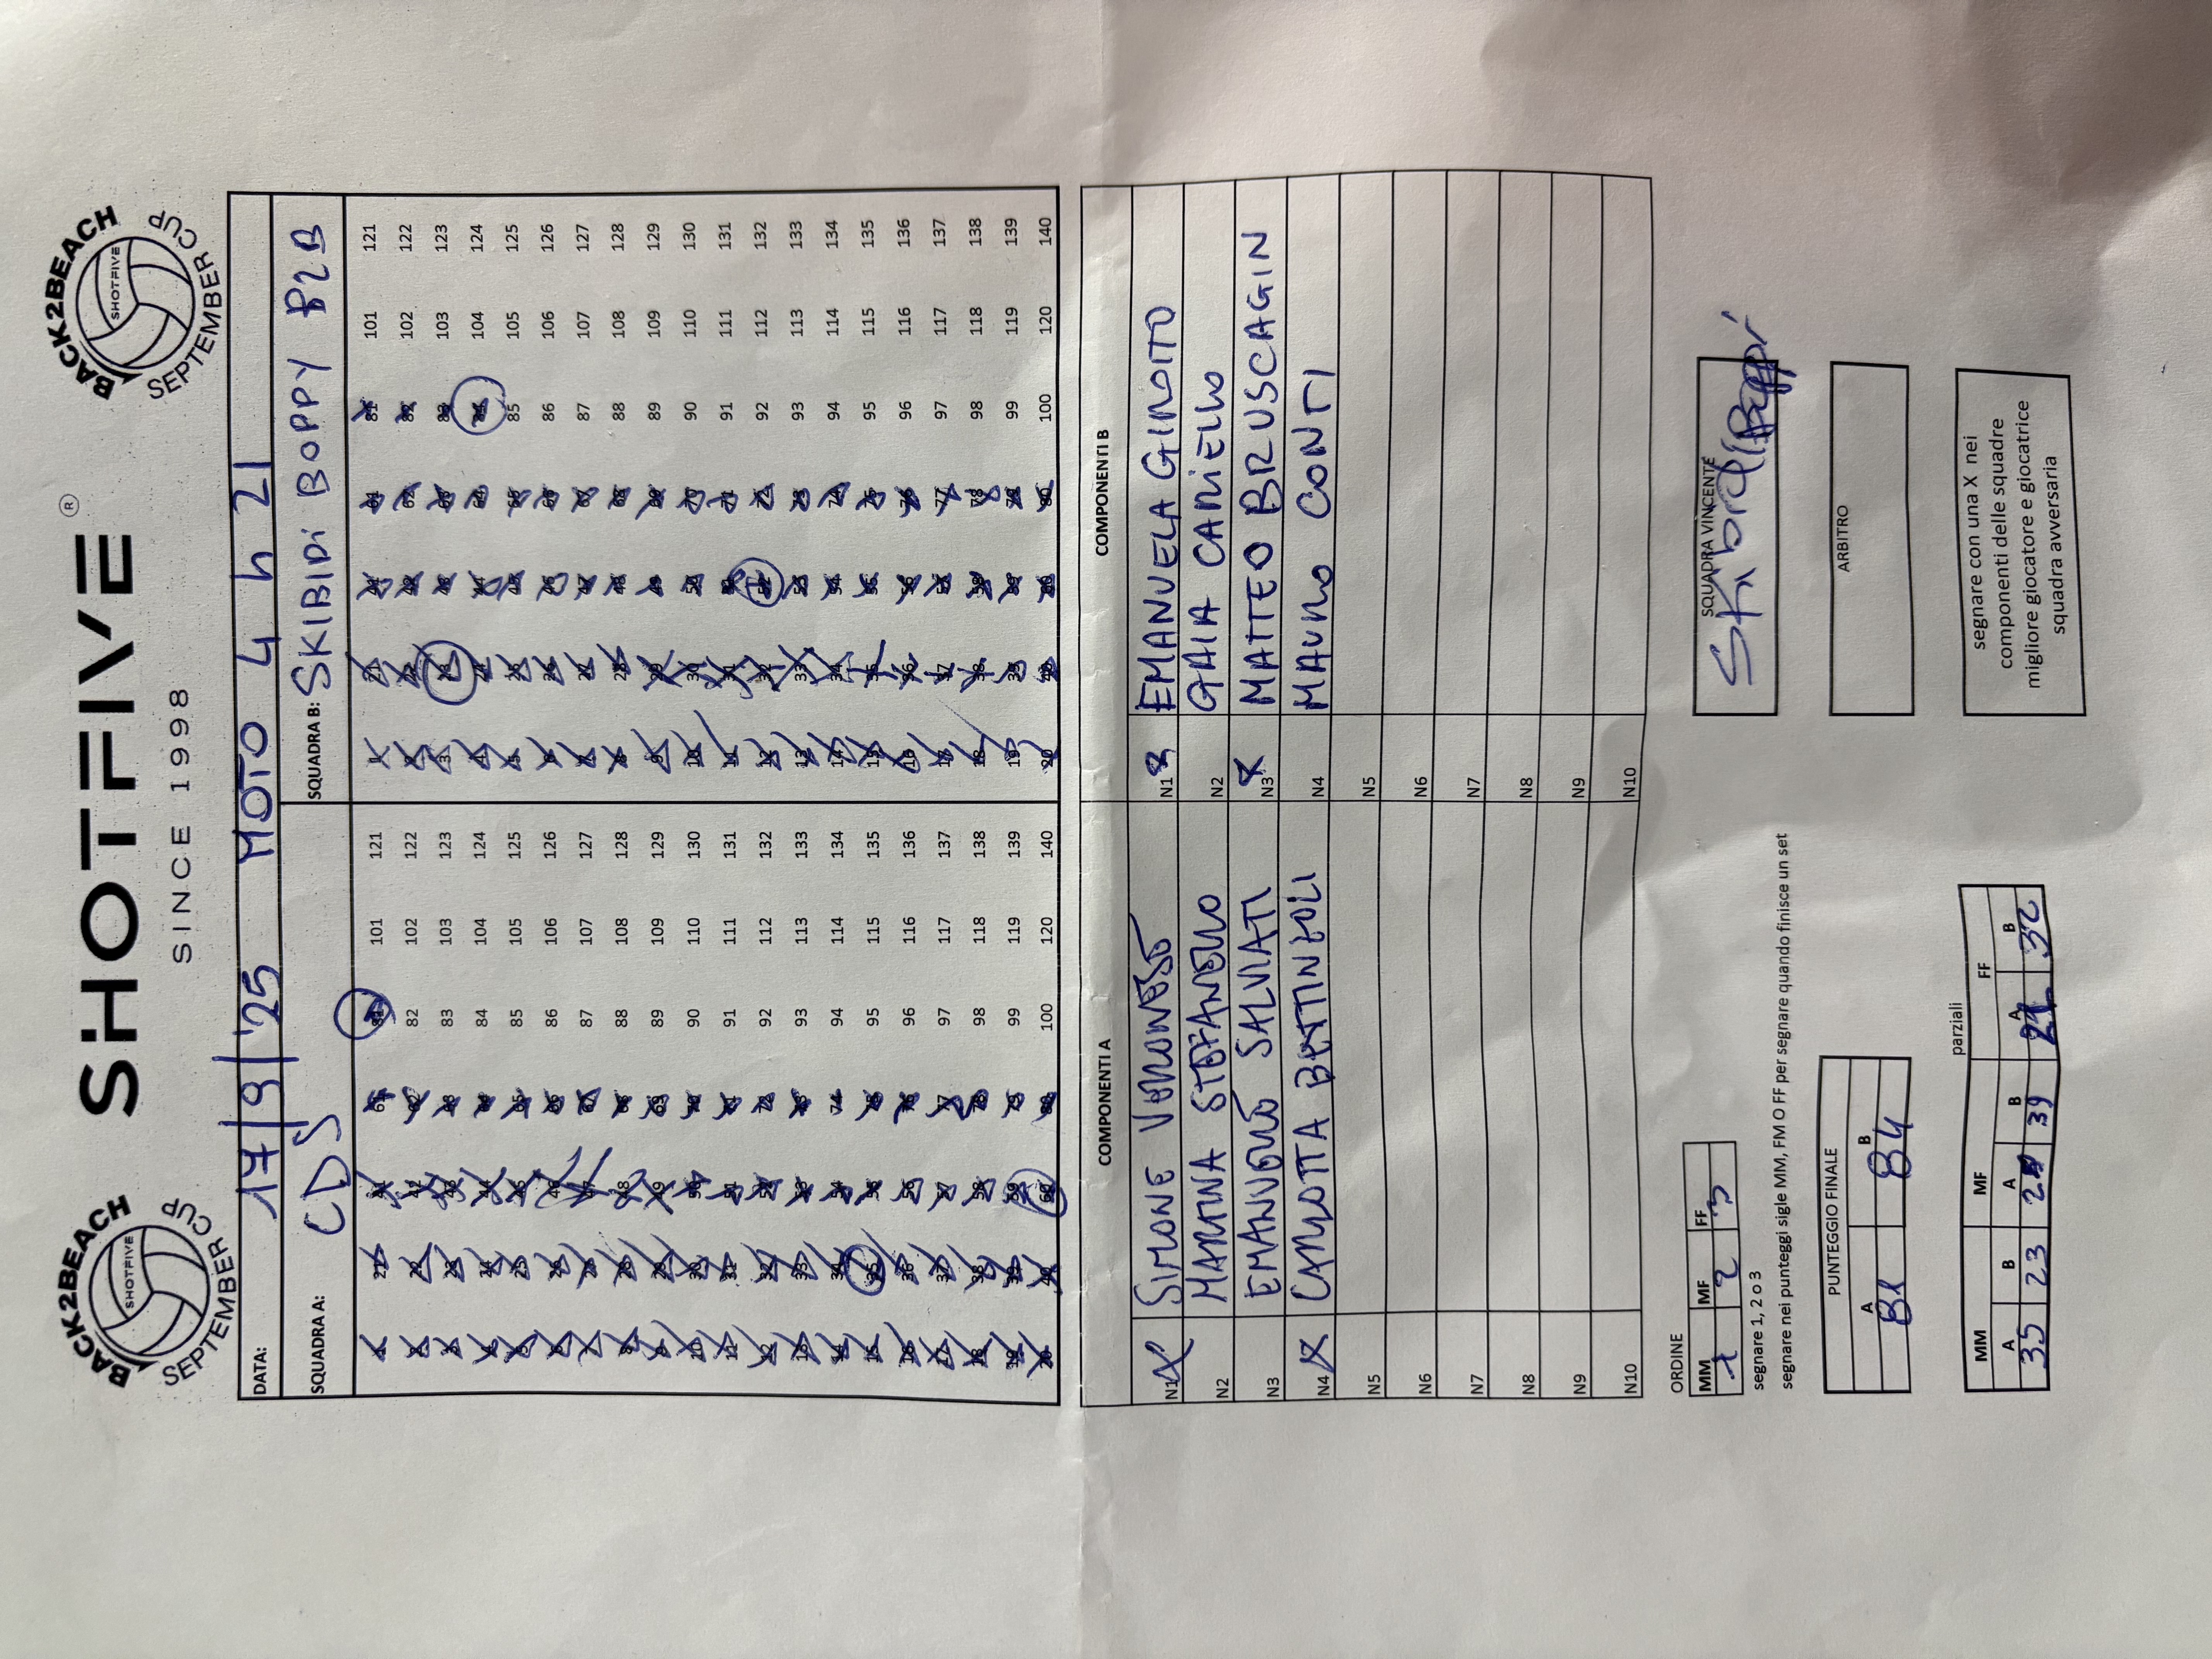 BACK2BEACH
SHOTFIVE
SEPTEMBER CUP
SHOTFIVE ®
SINCE 1998
BACK2BEACH
SHOTFIVE
SEPTEMBER CUP
DATA: 17/9/'25 MOTO 4 h 21
SQUADRA A: CDS SQUADRA B: SKIBIDI BOPPY B2B
1 21 41 61 81 101 121 1 21 41 61 81 101 121
2 22 42 62 82 102 122 2 22 42 62 82 102 122
3 23 43 63 83 103 123 3 23 43 63 83 103 123
4 24 44 64 84 104 124 4 24 44 64 84 104 124
5 25 45 65 85 105 125 5 25 45 65 85 105 125
6 26 46 66 86 106 126 6 26 46 66 86 106 126
7 27 47 67 87 107 127 7 27 47 67 87 107 127
8 28 48 68 88 108 128 8 28 48 68 88 108 128
9 29 49 69 89 109 129 9 29 49 69 89 109 129
10 30 50 70 90 110 130 10 30 50 70 90 110 130
11 31 51 71 91 111 131 11 31 51 71 91 111 131
12 32 52 72 92 112 132 12 32 52 72 92 112 132
13 33 53 73 93 113 133 13 33 53 73 93 113 133
14 34 54 74 94 114 134 14 34 54 74 94 114 134
15 35 55 75 95 115 135 15 35 55 75 95 115 135
16 36 56 76 96 116 136 16 36 56 76 96 116 136
17 37 57 77 97 117 137 17 37 57 77 97 117 137
18 38 58 78 98 118 138 18 38 58 78 98 118 138
19 39 59 79 99 119 139 19 39 59 79 99 119 139
20 40 60 80 100 120 140 20 40 60 80 100 120 140
COMPONENTI A COMPONENTI B
N1 X SIMONE VERONESE N1 X EMANUELA GINOITO
N2 MARTINA STEFANELLO N2 GAIA CARIELLO
N3 EMANUELE SALVIATI N3 X MATTEO BRUSCAGIN
N4 X CARLOTTA N4 MAURO CONTI
N5 N5
N6 N6
N7 N7
N8 N8
N9 N9
N10 N10
ORDINE
MM MF FF
1 2 3
segnare 1, 2 o 3
segnare nei punteggi sigle MM, FM O FF per segnare quando finisce un set
SQUADRA VINCENTE
Skibidi Boppi
PUNTEGGIO FINALE
A B
81 84
ARBITRO
parziali
MM MF FF
A B A B A B
35 23 39 21 32
segnare con una X nei
componenti delle squadre
migliore giocatore e giocatrice
squadra avversaria